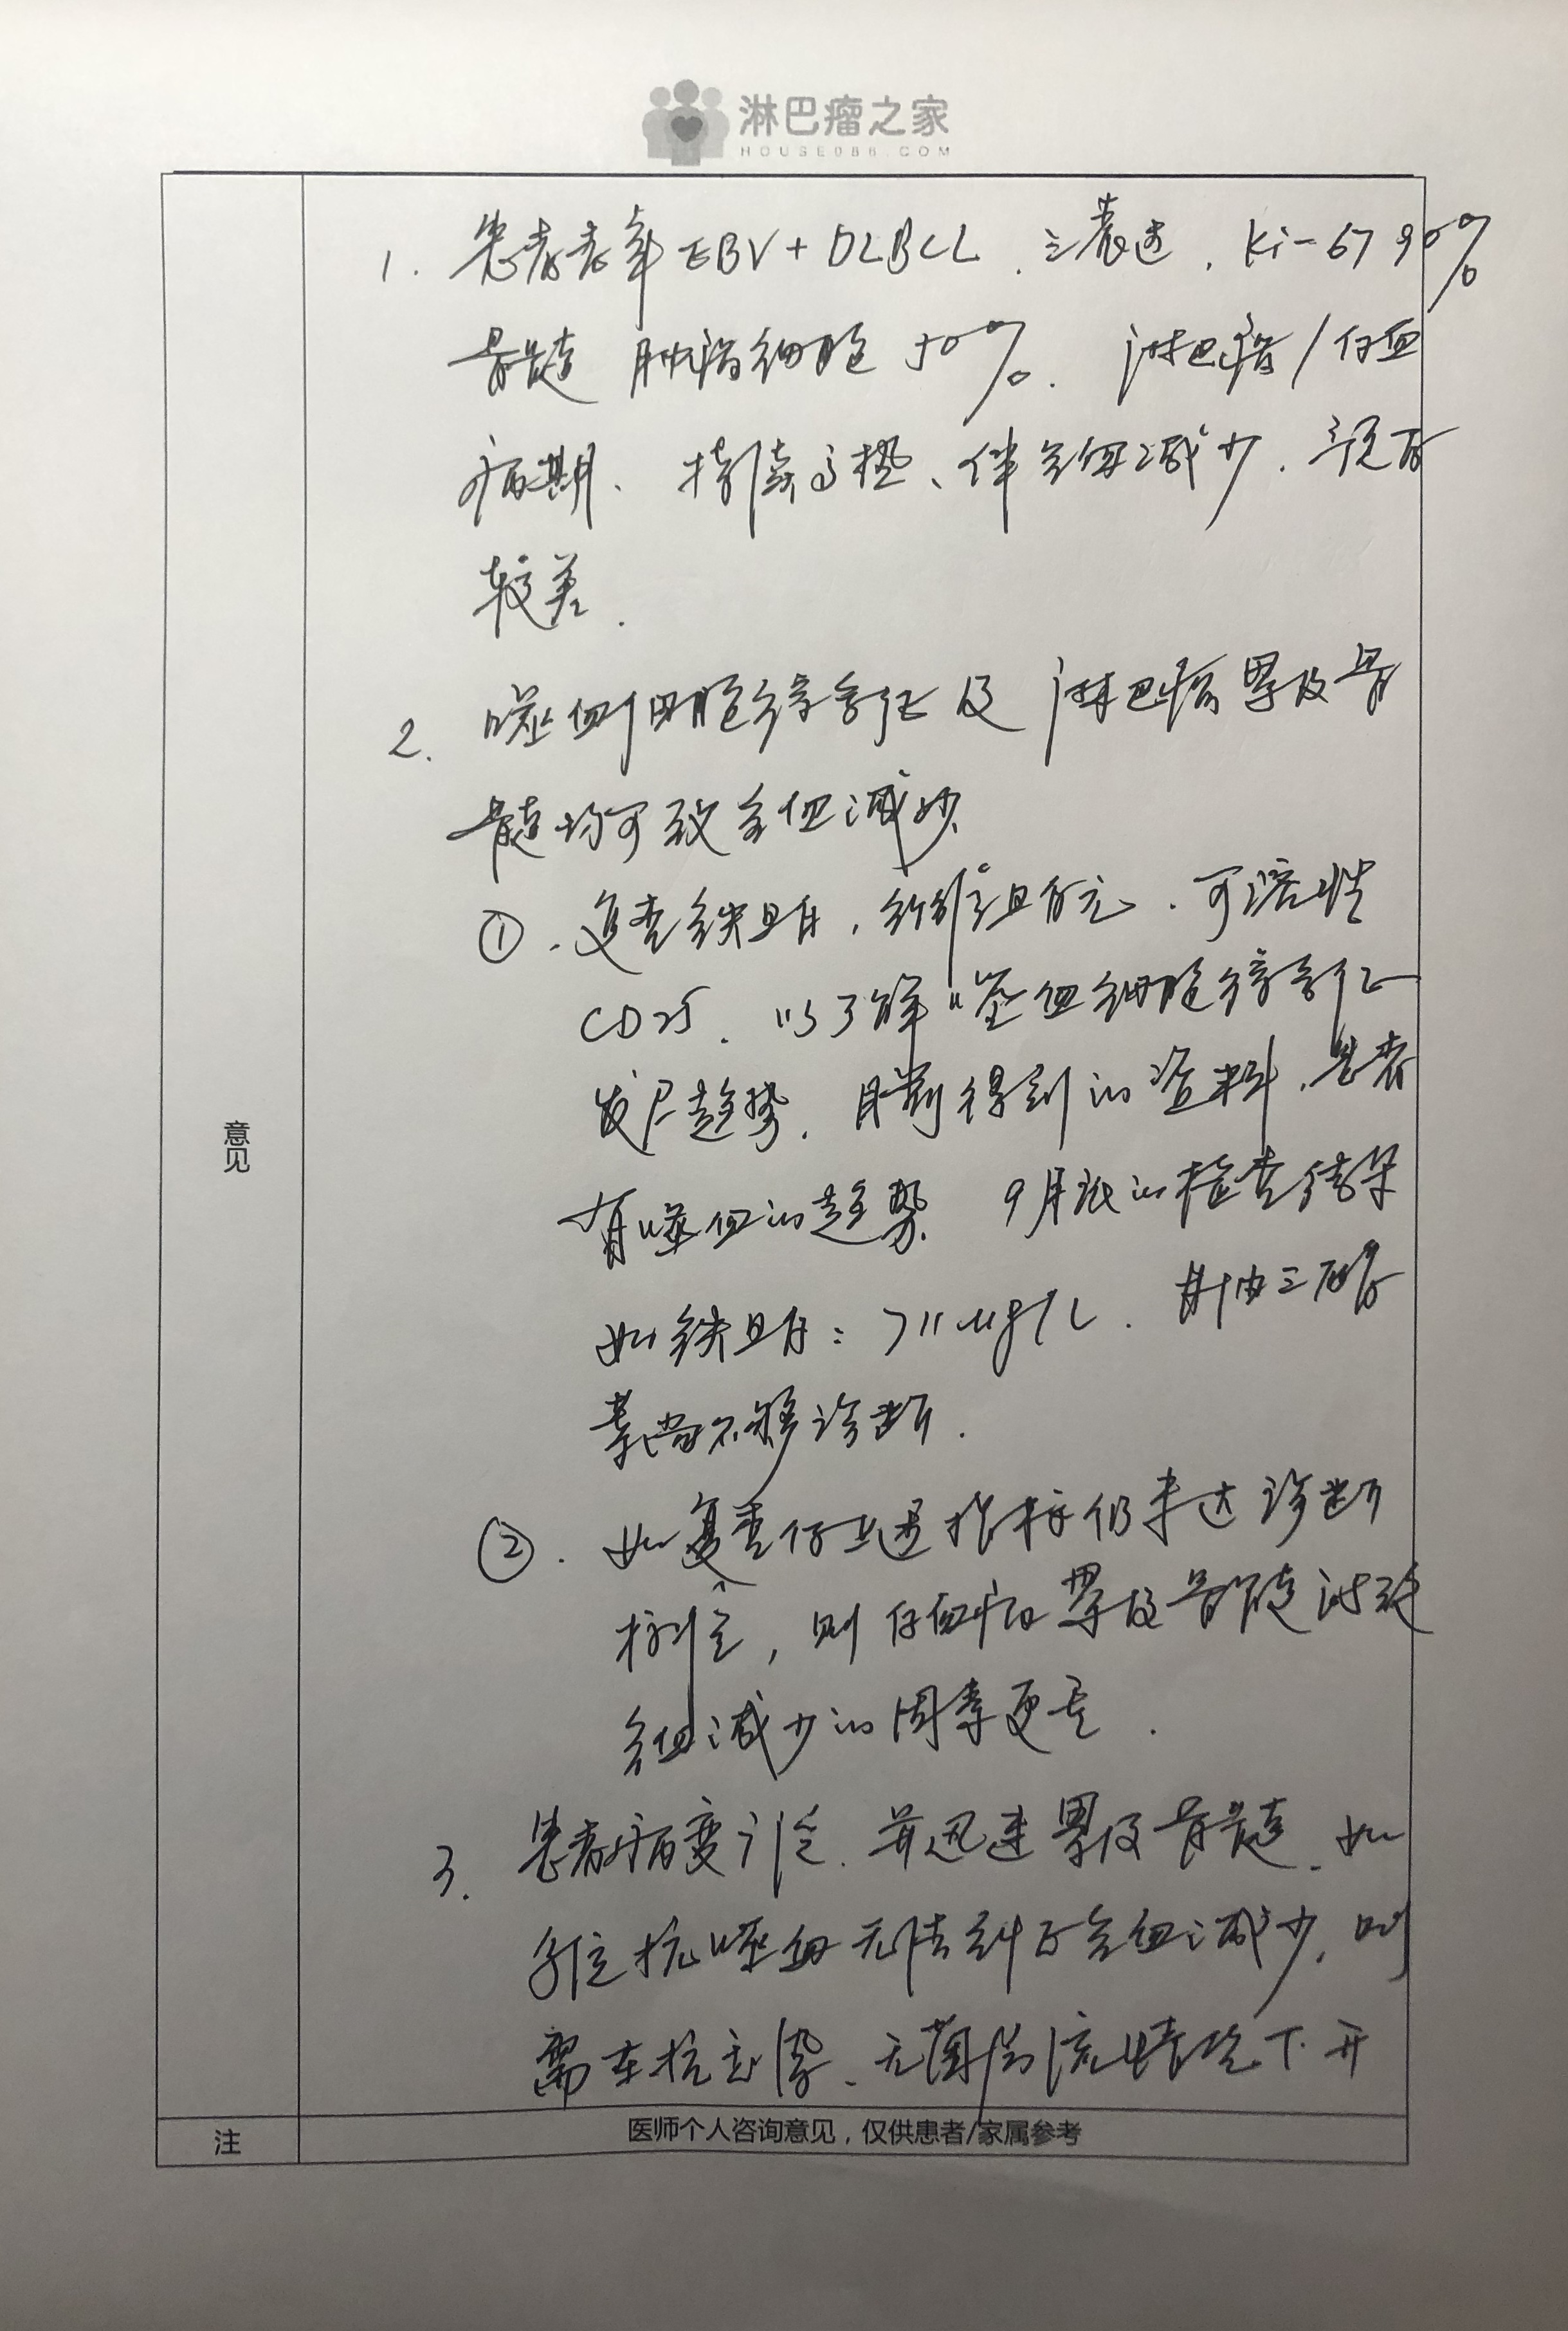 淋巴瘤之家
HOUSE086.COM
意见
1. 患者老年EBV+DLBCL、三表达，Ki-67 90%
骨髓 肿瘤细胞 50%. 淋巴瘤/白血
病期、持续高热、伴全血减少. 预后
较差.
2. 噬血细胞综合征及淋巴瘤累及骨
髓均可致全血减少.
①. 复查铁蛋白, 纤维蛋白元. 可溶性
CD25. 以了解"噬血细胞综合征
发展趋势. 目前得到的资料, 患者
有噬血的趋势. 9月底的检查结果
如铁蛋白: 711ug/L. 甘油三酯
等尚不够诊断.
②. 如复查仍上述指标仍未达诊断
标准, 则白血病累及骨髓
全血减少的因素更重.
3. 患者病变广泛. 并迅速累及骨髓. 如
抗噬血无法纠正全血减少, 则
需在抗感染、无菌层流情况下开
注
医师个人咨询意见，仅供患者/家属参考